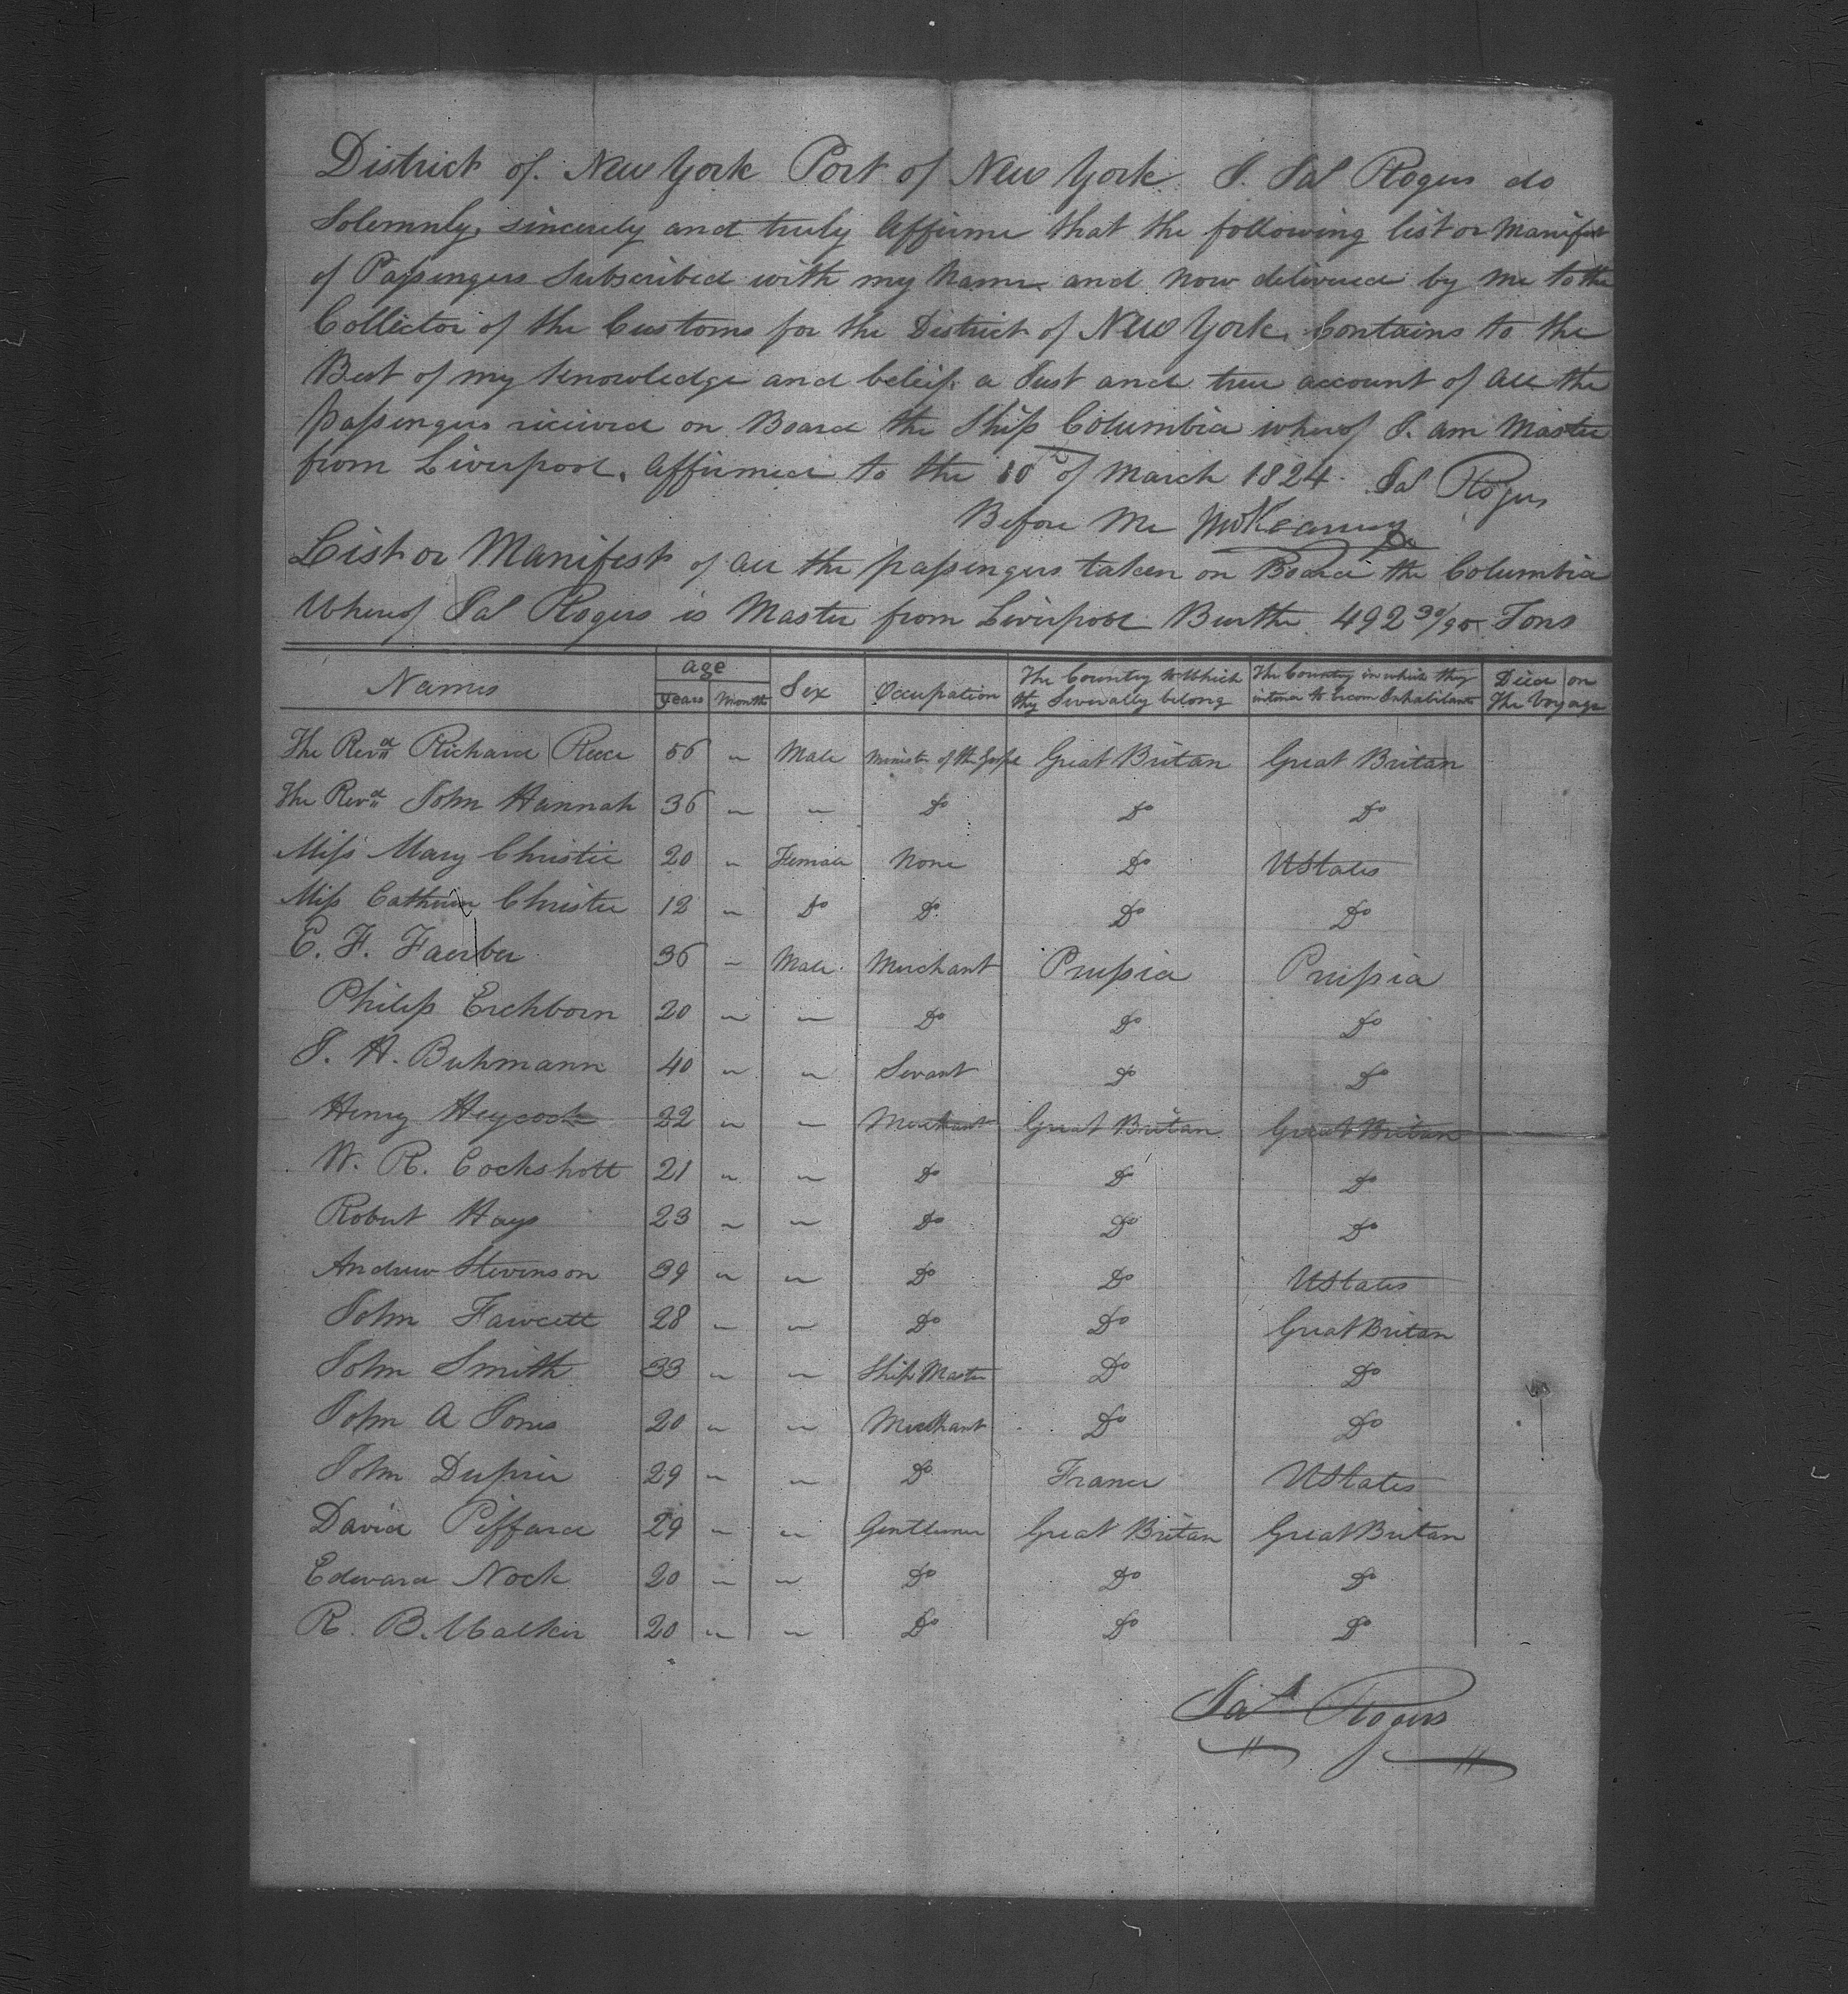 District of New York Port of New York I. Jas Rogers do
Solemnly, sincerely and truly Affirme that the following list or Manifest
of Passengers Subscribed with my Name and now delivered by me to the
Collector of the Customs for the District of New York, Contains to the
Best of my Knowledge and beleif a Just and true account of all the
passengers received on Board the Ship Columbia wherof I. am Master
from Liverpool, affirmed to the 10th of March 1824. Jas Rogers
Before Me
List or Manifest of all the passengers taken on Board the Columbia
Wherof Jas Rogers is Master from Liverpool Burthe 492 30/95 Tons
Names age years Month Sex Occupation The Country to Which they Severally belong The Country in which they intend to becom Inhabitants Died on The Voyage
The Revd Richard Reece 56 " Male Minister of the Gospel Great Britan Great Britan
The Revd John Hannah 36 " " Do Do Do
Miss Mary Christie 20 " Female None Do UStates
Miss Catherine Christie 12 " Do Do Do Do
C. F. Faerber 36 " Male Merchant Prussia Prussia
Philip Eichborn 20 " " Do Do Do
J. H. Buhmann 40 " " Servant Do Do
Henry Heycock 22 " " Merchant Great Britan Great Britan
W. R. Cockshott 21 " " Do Do Do
Robert Hays 23 " " Do Do Do
Andrew Stevenson 39 " " Do Do UStates
John Fawcett 28 " " Do Do Great Britan
John Smith 33 " " Ship Master Do Do
John A Jones 20 " " Merchant Do Do
John Dupier 29 " " Do France UStates
David Piffard 29 " " Gentlemen Great Britan Great Britan
Edward Nock 20 " " Do Do Do
R. B. Walker 20 " " Do Do Do
Jas Rogers